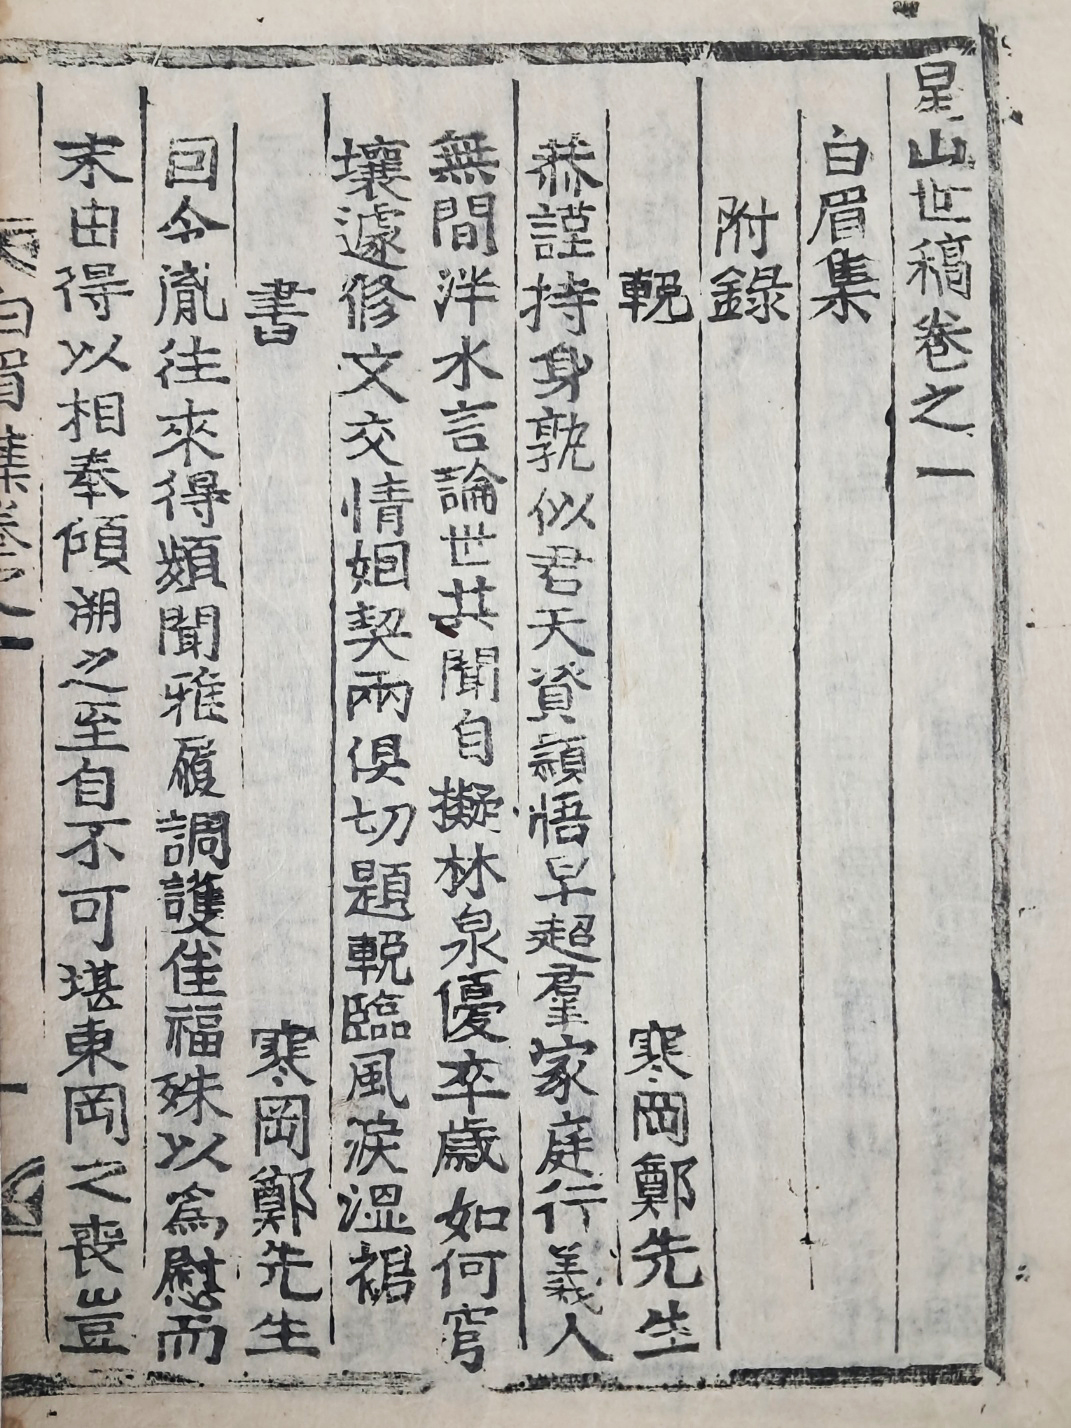 星山世稿卷之一
白眉集
附錄
輓 寒岡鄭先生
恭謹持身孰似君天資頴悟早超羣家庭行義人
無間泮水言論世共聞自擬林泉優卒歲如何穹
壤遽修文交情姻契兩俱切題輓臨風淚濕裾
書 寒岡鄭先生
回令胤往來得頻聞雅履調護佳福殊以爲慰而
末由得以相奉傾溯之至自不可堪東岡之喪豈
白眉集卷之一
一